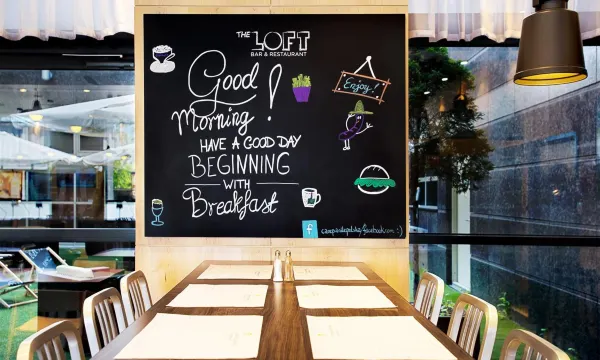 THE LOFT
BAR & RESTAURANT
Good
Morning!
HAVE A GOOD DAY
BEGINNING
WITH
Breakfast
Enjoy!
f